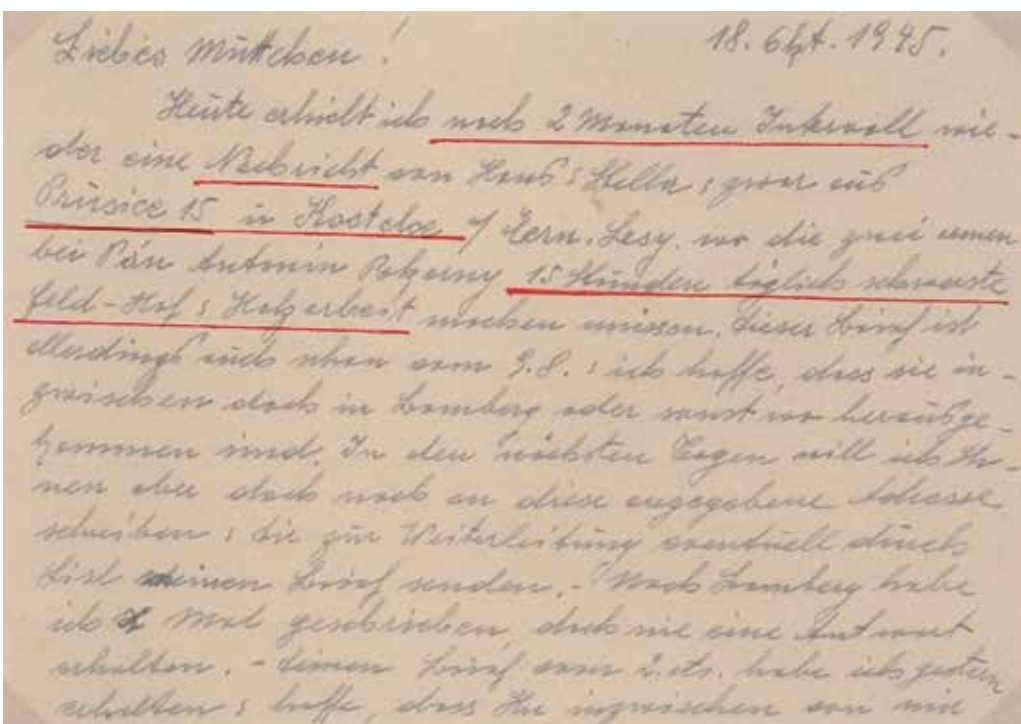 Liebes Muttchen! 18. Sept. 1945.
Heute erhielt ich nach 2 Monaten Intervall wie-
der eine Nachricht von Hans & Stella & zwar aus
Prusice 15 in Kostelec / Cern. Lesy, wo die zwei armen
bei Pán Antonin Pokorny 15 Stunden täglich schwerste
Feld-Hof & Holzarbeit machen müssen. Dieser Brief ist
allerdings auch schon vom 9.8. & ich hoffe, dass sie in-
zwischen doch in Bamberg oder sonst wo herausge-
kommen sind. In den nächsten Tagen will ich Ih-
nen aber doch noch an diese angegebene Adresse
schreiben & dir zur Weiterleitung eventuell durch
Lisl einen Brief senden. - Nach Bamberg habe
ich Mal geschrieben, doch nie eine Antwort
erhalten. - Deinen Brief vom 2. ds. habe ich gestern
erhalten & hoffe, dass Ihr inzwischen von mir